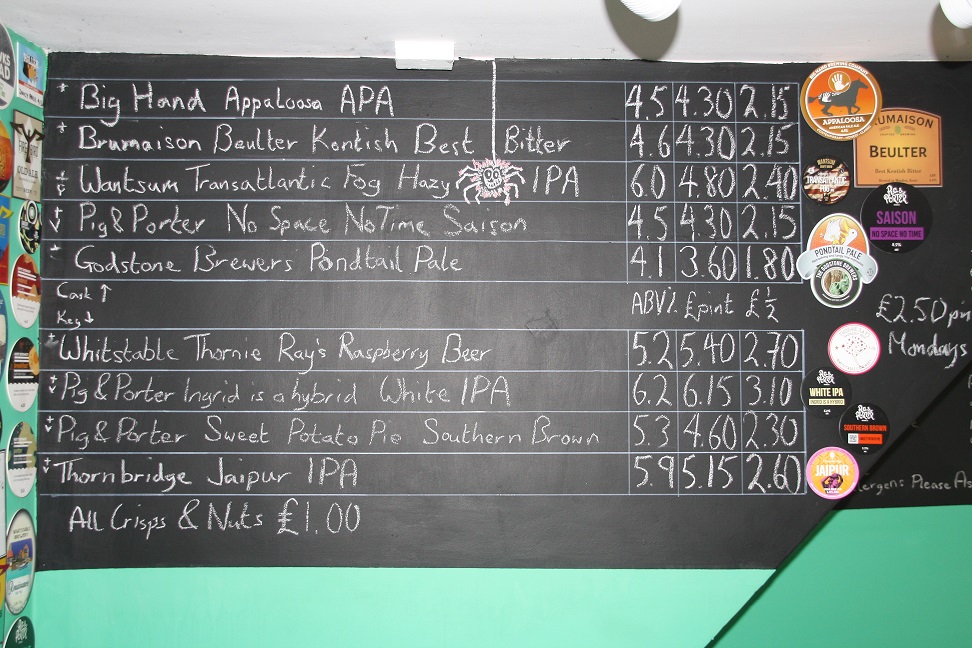 Big Hand Appaloosa APA 4.5 4.30 2.15
Brumaison Beulter Kentish Best Bitter 4.6 4.30 2.15
Wantsum Transatlantic Fog Hazy IPA 6.0 4.80 2.40
Pig & Porter No Space No Time Saison 4.5 4.30 2.15
Godstone Brewers Pondtail Pale 4.1 3.60 1.80
Cask ↑ ABV% £pint £½
Keg ↓
Whitstable Thornie Ray's Raspberry Beer 5.2 5.40 2.70
Pig & Porter Ingrid is a hybrid White IPA 6.2 6.15 3.10
Pig & Porter Sweet Potato Pie Southern Brown 5.3 4.60 2.30
Thornbridge Jaipur IPA 5.9 5.15 2.60
All Crisps & Nuts £1.00
APPALOOSA
BEULTER
Best Kentish Bitter
WANTSUM
TRANSATLANTIC
FOG
PIG & PORTER
SAISON
NO SPACE NO TIME
PONDTAIL PALE
THE GODSTONE BREWERS
£2.50
Mondays
WHITE IPA
INGRID IS A HYBRID
SOUTHERN BROWN
JAIPUR
Please